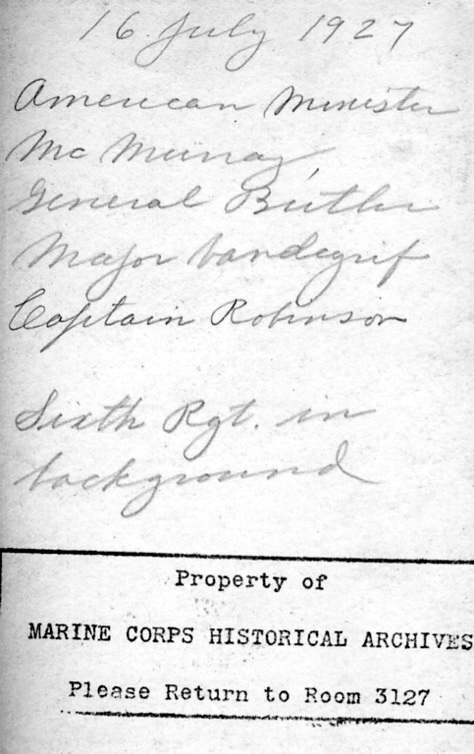 16 July 1927
American Minister
Mc Murray,
General Butler
Major Vandegrif
Captain Robinson
Sixth Rgt. in
background
Property of
MARINE CORPS HISTORICAL ARCHIVES
Please Return to Room 3127